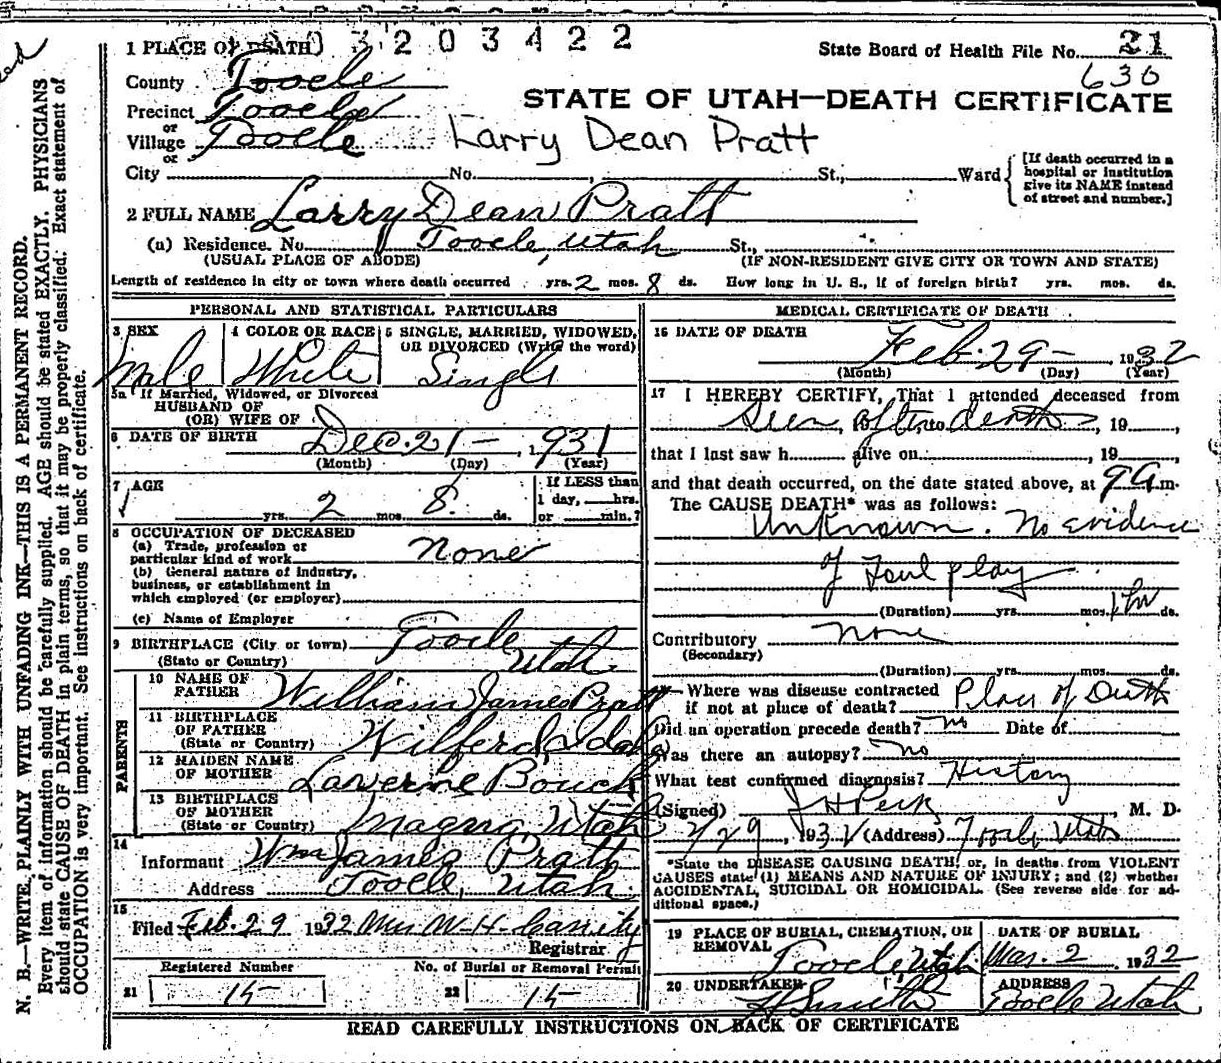 1 PLACE OF DEATH 3 2 0 3 4 2 2 State Board of Health File No. 21
630
County Tooele
STATE OF UTAH—DEATH CERTIFICATE
Precinct Tooele
or
Village Tooele Larry Dean Pratt
or
City No. , St., Ward { [If death occurred in a hospital or institution give its NAME instead of street and number.]
2 FULL NAME Larry Dean Pratt
(a) Residence. No. Tooele, Utah St.,
(USUAL PLACE OF ABODE) (IF NON-RESIDENT GIVE CITY OR TOWN AND STATE)
Length of residence in city or town where death occurred yrs. 2 mos. 8 ds. How long in U. S., if of foreign birth? yrs. mos. ds.
PERSONAL AND STATISTICAL PARTICULARS
3 SEX 4 COLOR OR RACE 5 SINGLE, MARRIED, WIDOWED, OR DIVORCED (Write the word)
Male White Single
5a If Married, Widowed, or Divorced
HUSBAND OF
(OR) WIFE OF
6 DATE OF BIRTH Dec. 21 - , 1931
(Month) (Day) (Year)
7 AGE If LESS than
1 day, hrs.
yrs. 2 mos. 8 ds. or min.?
8 OCCUPATION OF DECEASED
(a) Trade, profession or
particular kind of work None
(b) General nature of industry,
business, or establishment in
which employed (or employer)
(c) Name of Employer
9 BIRTHPLACE (City or town) Tooele
(State or Country) Utah
PARENTS
10 NAME OF FATHER William James Pratt
11 BIRTHPLACE OF FATHER
(State or Country) Wilferd Idaho
12 MAIDEN NAME OF MOTHER Laverne Bouck
13 BIRTHPLACE OF MOTHER
(State or Country) Magna, Utah
14
Informant Wm James Pratt
Address Tooele, Utah
15
Filed Feb. 29 1932 W. H.
Registrar
Registered Number No. of Burial or Removal Permit
21 15 22 15
MEDICAL CERTIFICATE OF DEATH
16 DATE OF DEATH
Feb. 29 - , 1932
(Month) (Day) (Year)
17 I HEREBY CERTIFY, That I attended deceased from
Seen, 19 after to death , 19 ,
that I last saw h alive on , 19 ,
and that death occurred, on the date stated above, at 9 A m.
The CAUSE DEATH* was as follows:
Unknown. No evidence
of Foul play
(Duration) yrs. mos. 1 hr ds.
Contributory none
(Secondary)
(Duration) yrs. mos. ds.
Where was disease contracted
if not at place of death? Place of Death
Did an operation precede death? no Date of
Was there an autopsy? no
What test confirmed diagnosis? History
(Signed) J H Peck , M. D.
2/29, 1932 (Address) Tooele Utah
*State the DISEASE CAUSING DEATH, or, in deaths from VIOLENT
CAUSES state (1) MEANS AND NATURE OF INJURY; and (2) whether
ACCIDENTAL, SUICIDAL OR HOMICIDAL. (See reverse side for ad-
ditional space.)
19 PLACE OF BURIAL, CREMATION, OR REMOVAL DATE OF BURIAL
Tooele, Utah Mar. 2 , 1932
20 UNDERTAKER ADDRESS
Smith Tooele Utah
READ CAREFULLY INSTRUCTIONS ON BACK OF CERTIFICATE
N. B.—WRITE PLAINLY WITH UNFADING INK—THIS IS A PERMANENT RECORD.
Every item of information should be carefully supplied. AGE should be stated EXACTLY. PHYSICIANS
should state CAUSE OF DEATH in plain terms, so that it may be properly classified. Exact statement of
OCCUPATION is very important. See instructions on back of certificate.